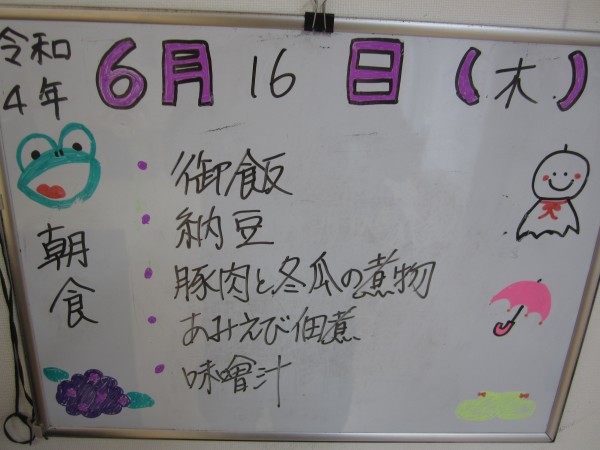 令和
4年
6月16日(木)
朝食
・御飯
・納豆
・豚肉と冬瓜の煮物
・あみえび佃煮
・味噌汁